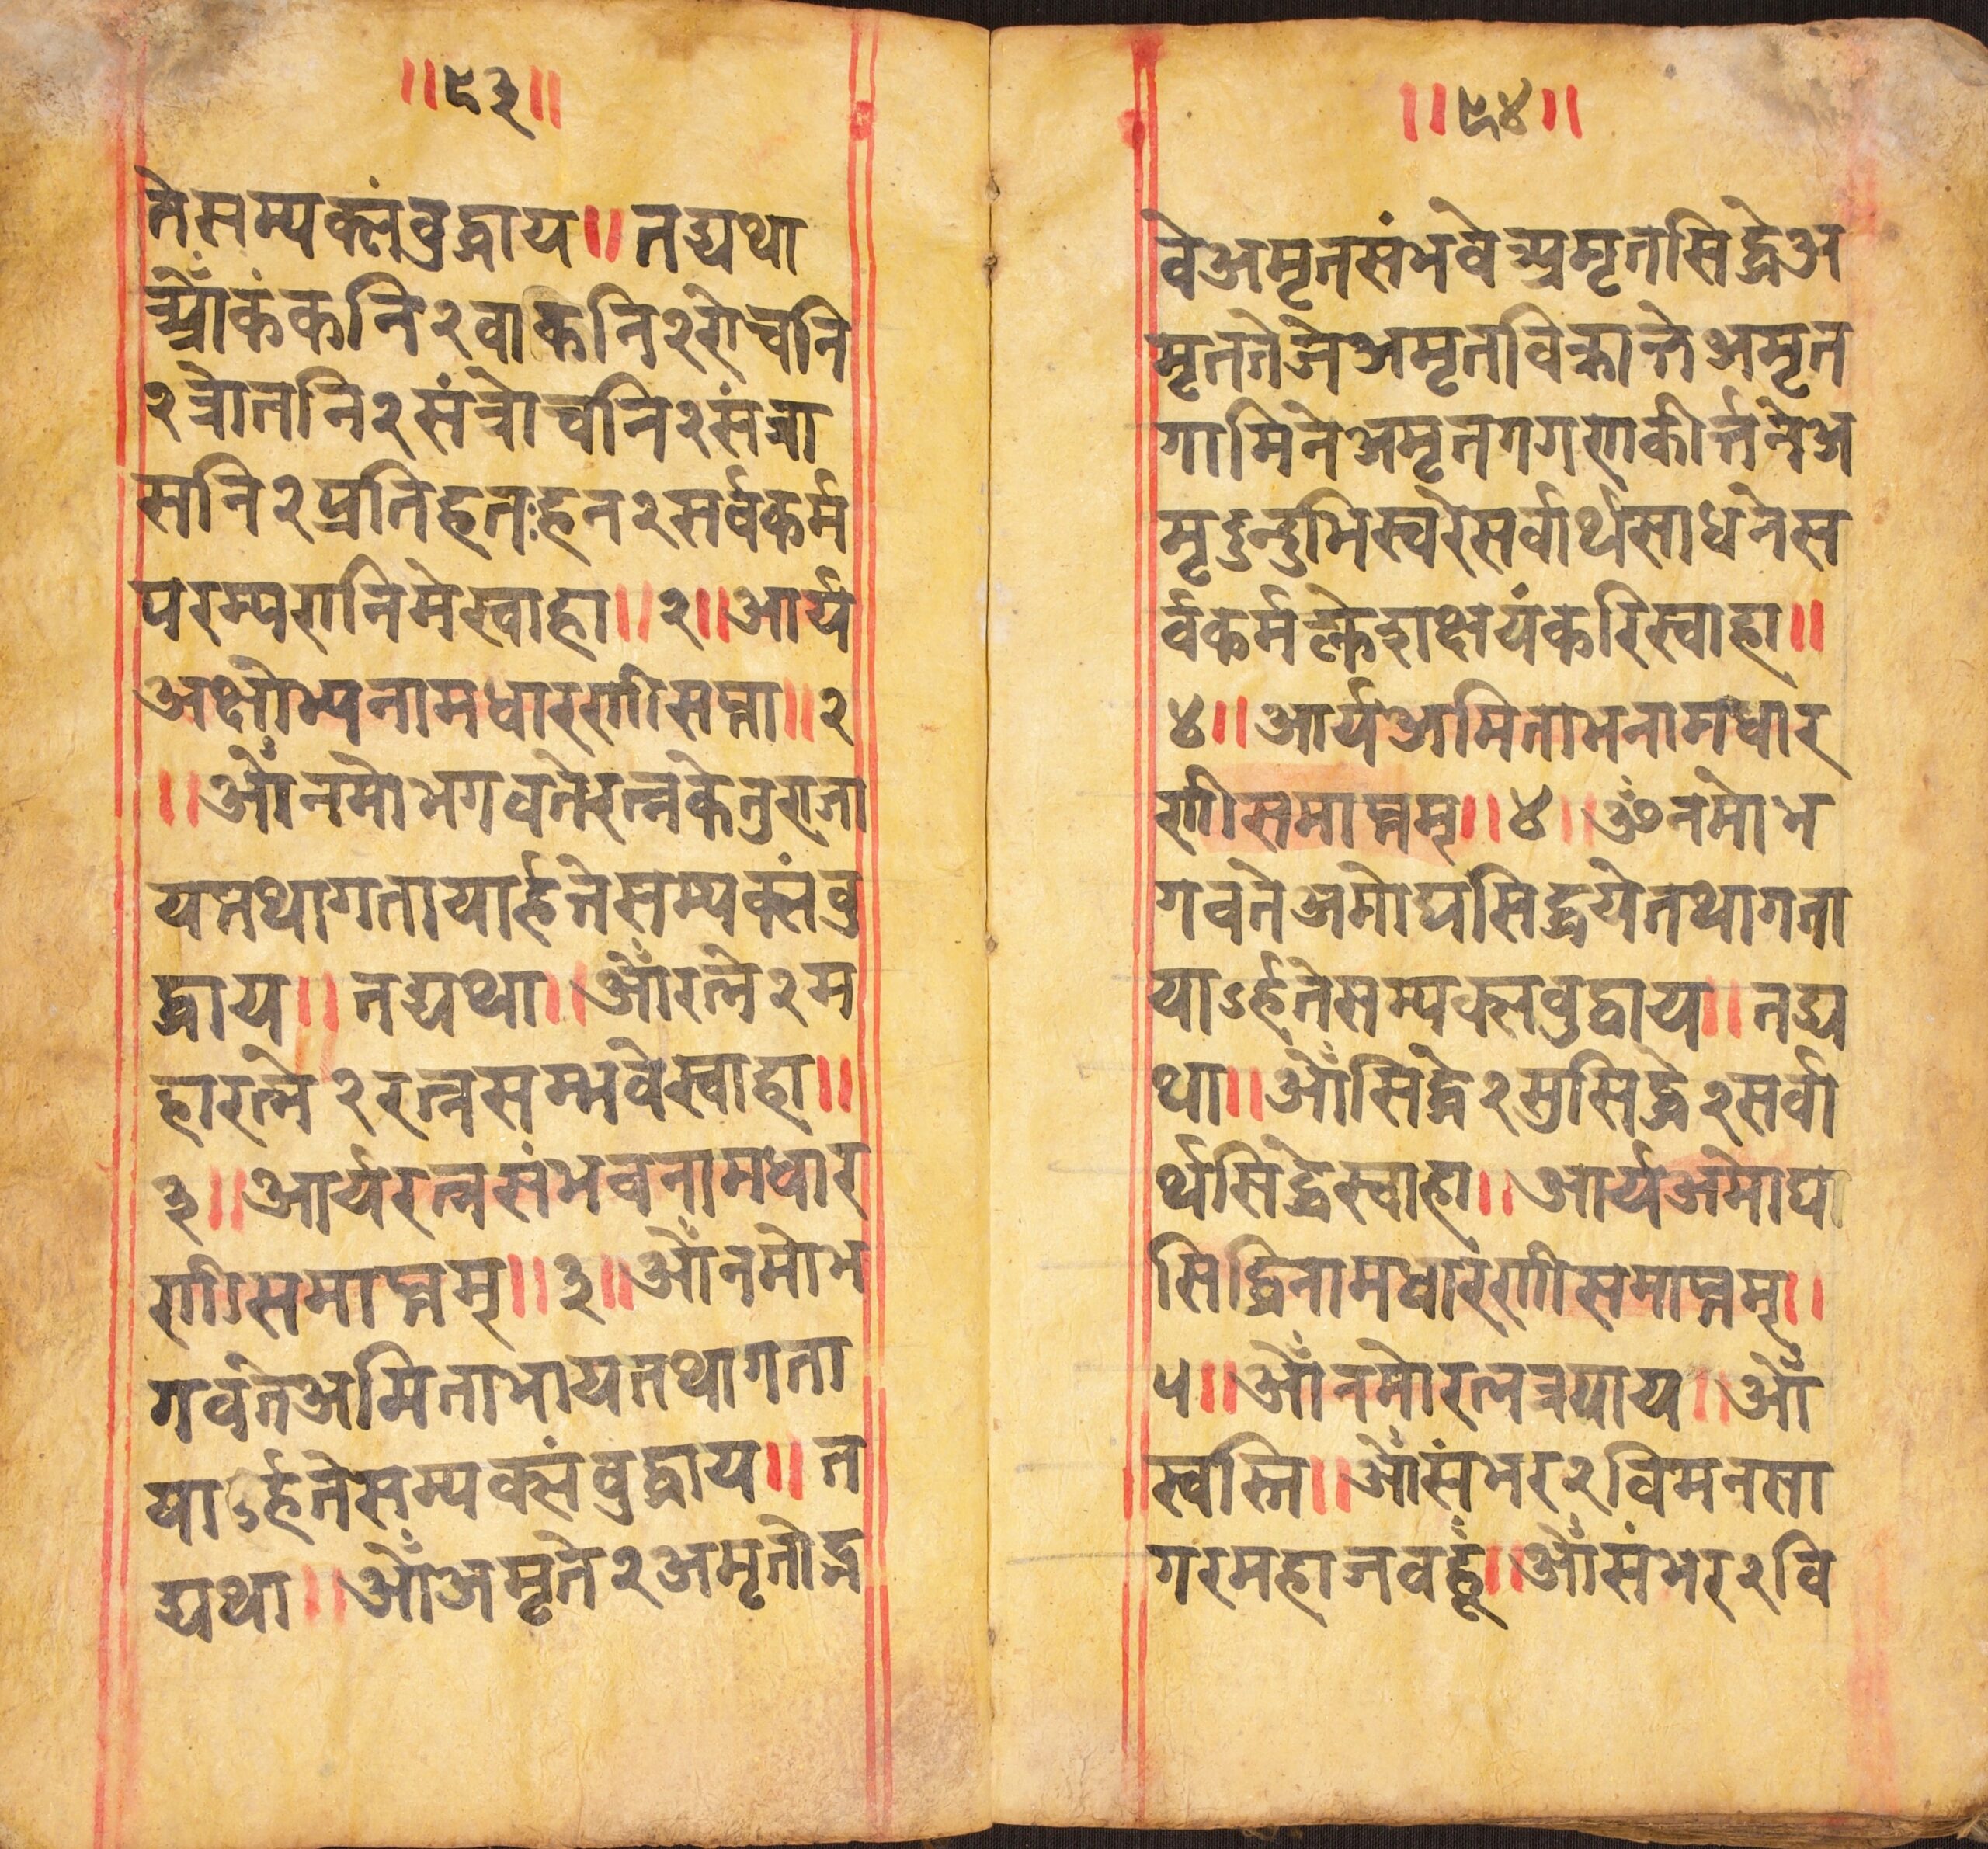 ॥९३॥
ते सम्यक्संवुद्धाय॥ तद्यथा
ओँ कंकनि२ वाकनि२ रोचनि
२ त्रोतनि२ संत्रोचनि२ संत्रा
सनि२ प्रतिहतःहन२ सर्वकर्म
परम्परानि मे स्वाहा॥२॥ आर्य
अक्षोभ्यनामधारणी सप्ता॥२
॥ओँ नमो भगवते रत्नकेतुराजा
य तथागतायार्हते सम्यक्संवु
द्धाय॥ तद्यथा॥ ओँ रत्ने२ म
हारत्ने२ रत्नसम्भवे स्वाहा॥
३॥ आर्यरत्नसंभवनामधार
णी समाप्तम्॥३॥ ओँ नमो भ
गवते अमिताभाय तथागता
याऽर्हते सम्यक्संवुद्धाय॥ त
द्यथा॥ ओँ अमृते२ अमृतोद्भ
॥९४॥
वे अमृतसंभवे अमृतसिद्धे अ
मृततेजे अमृतविक्रान्ते अमृत
गामिने अमृतगगणकीर्त्तने अ
मृदुन्दुभिस्वरे सर्वार्थसाधने स
र्वकर्मक्लेशक्षयंकरि स्वाहा॥
४॥ आर्यअमिताभनामधार
णी समाप्तम्॥४॥ ॐ नमो भ
गवते अमोघसिद्धये तथागता
याऽर्हते सम्यक्सवुद्धाय॥ तद्य
था॥ ओँ सिद्धे२ सुसिद्धे२ सर्वा
र्थसिद्धे स्वाहा॥ आर्यअमोघ
सिद्धिनामधारणी समाप्तम्॥
५॥ ओँ नमो रत्नत्रयाय॥ ओँ
स्वस्ति॥ ओँ संभर२ विमनसा
गरमहाजवहूँ॥ ओँ संभर२ वि